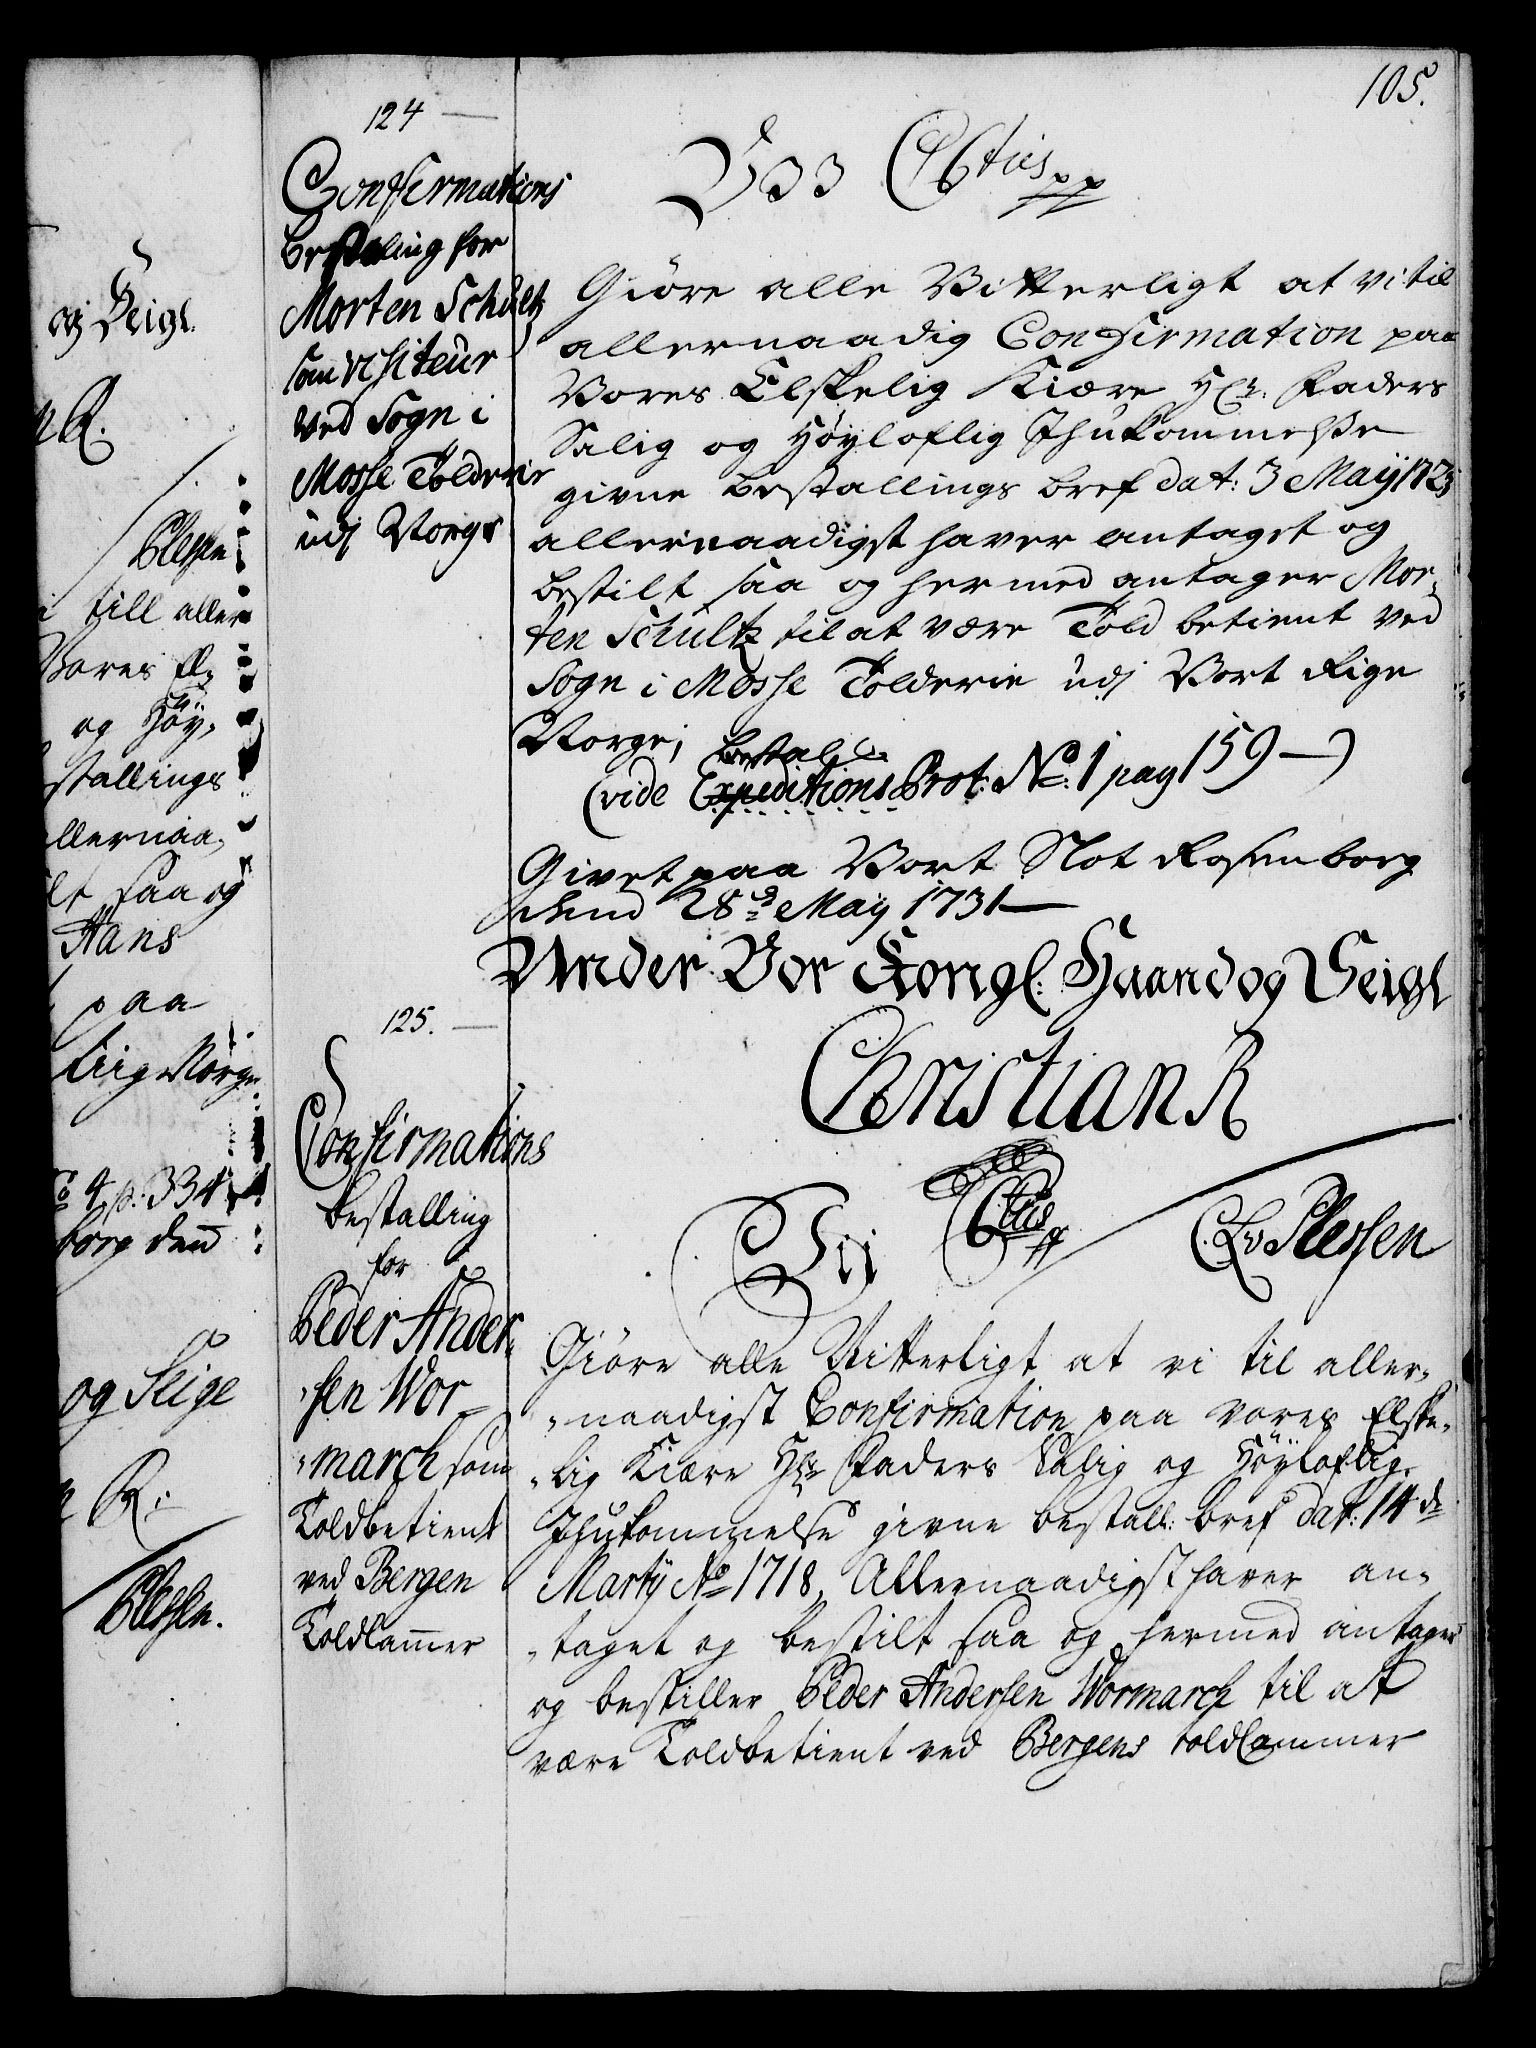 105.
124
Confirmations
bestaling for
Morten Schultz
som visiteur
ved Sogn i
Mosse Tolderie
udj Norge
Vii C 6tus pp
Giöre alle Vitterligt at vi til
allernaadig Confirmation paa
Vores Elskelig Kiære Hr. Faders
Salig og Höyloflig Ihukommelse
givne bestallings bref dat: 3 Maij 1723
allernaadigst haver antaget og
bestilt saa og hermed antager Mor-
ten Schultz til at være Told betient ved
Sogn i Mosse Tolderie udj Vort Rige
Norge;
bestal
(vide Expeditions Prot: No: 1 pag 159 —)
Givet paa Vort Slot Rosenborg
dend 28de May 1731
Under Vor Kongl: Haand og Seigl
Christian R
C. A v Plessen
125.
Confirmations
bestalling
for
Peder Ander-
-sen Wor-
-march som
Toldbetient
ved Bergen
Toldcamer
Vii C 6tus pp
Giöre alle Vitterligt at vi til aller-
-naadigst Confirmation paa vores Elske-
-lig Kiære Hr Faders Salig og Höyloflig
Ihukommelse givne bestall: bref dat: 14 de
Martij Ao 1718, Allernaadigst haver an-
-taget og bestilt saa og hermed antager
og bestiller Peder Andersen Wormarch til at
være Toldbetient ved Bergens toldCammer
og Seigl.
R.
Plessen
i till aller
Vores El-
og Höy-
stallings
llernaa-
lt saa og
Hans
paa
Norge
4 p: 334
borg den
og Seige
R:
Plessen.